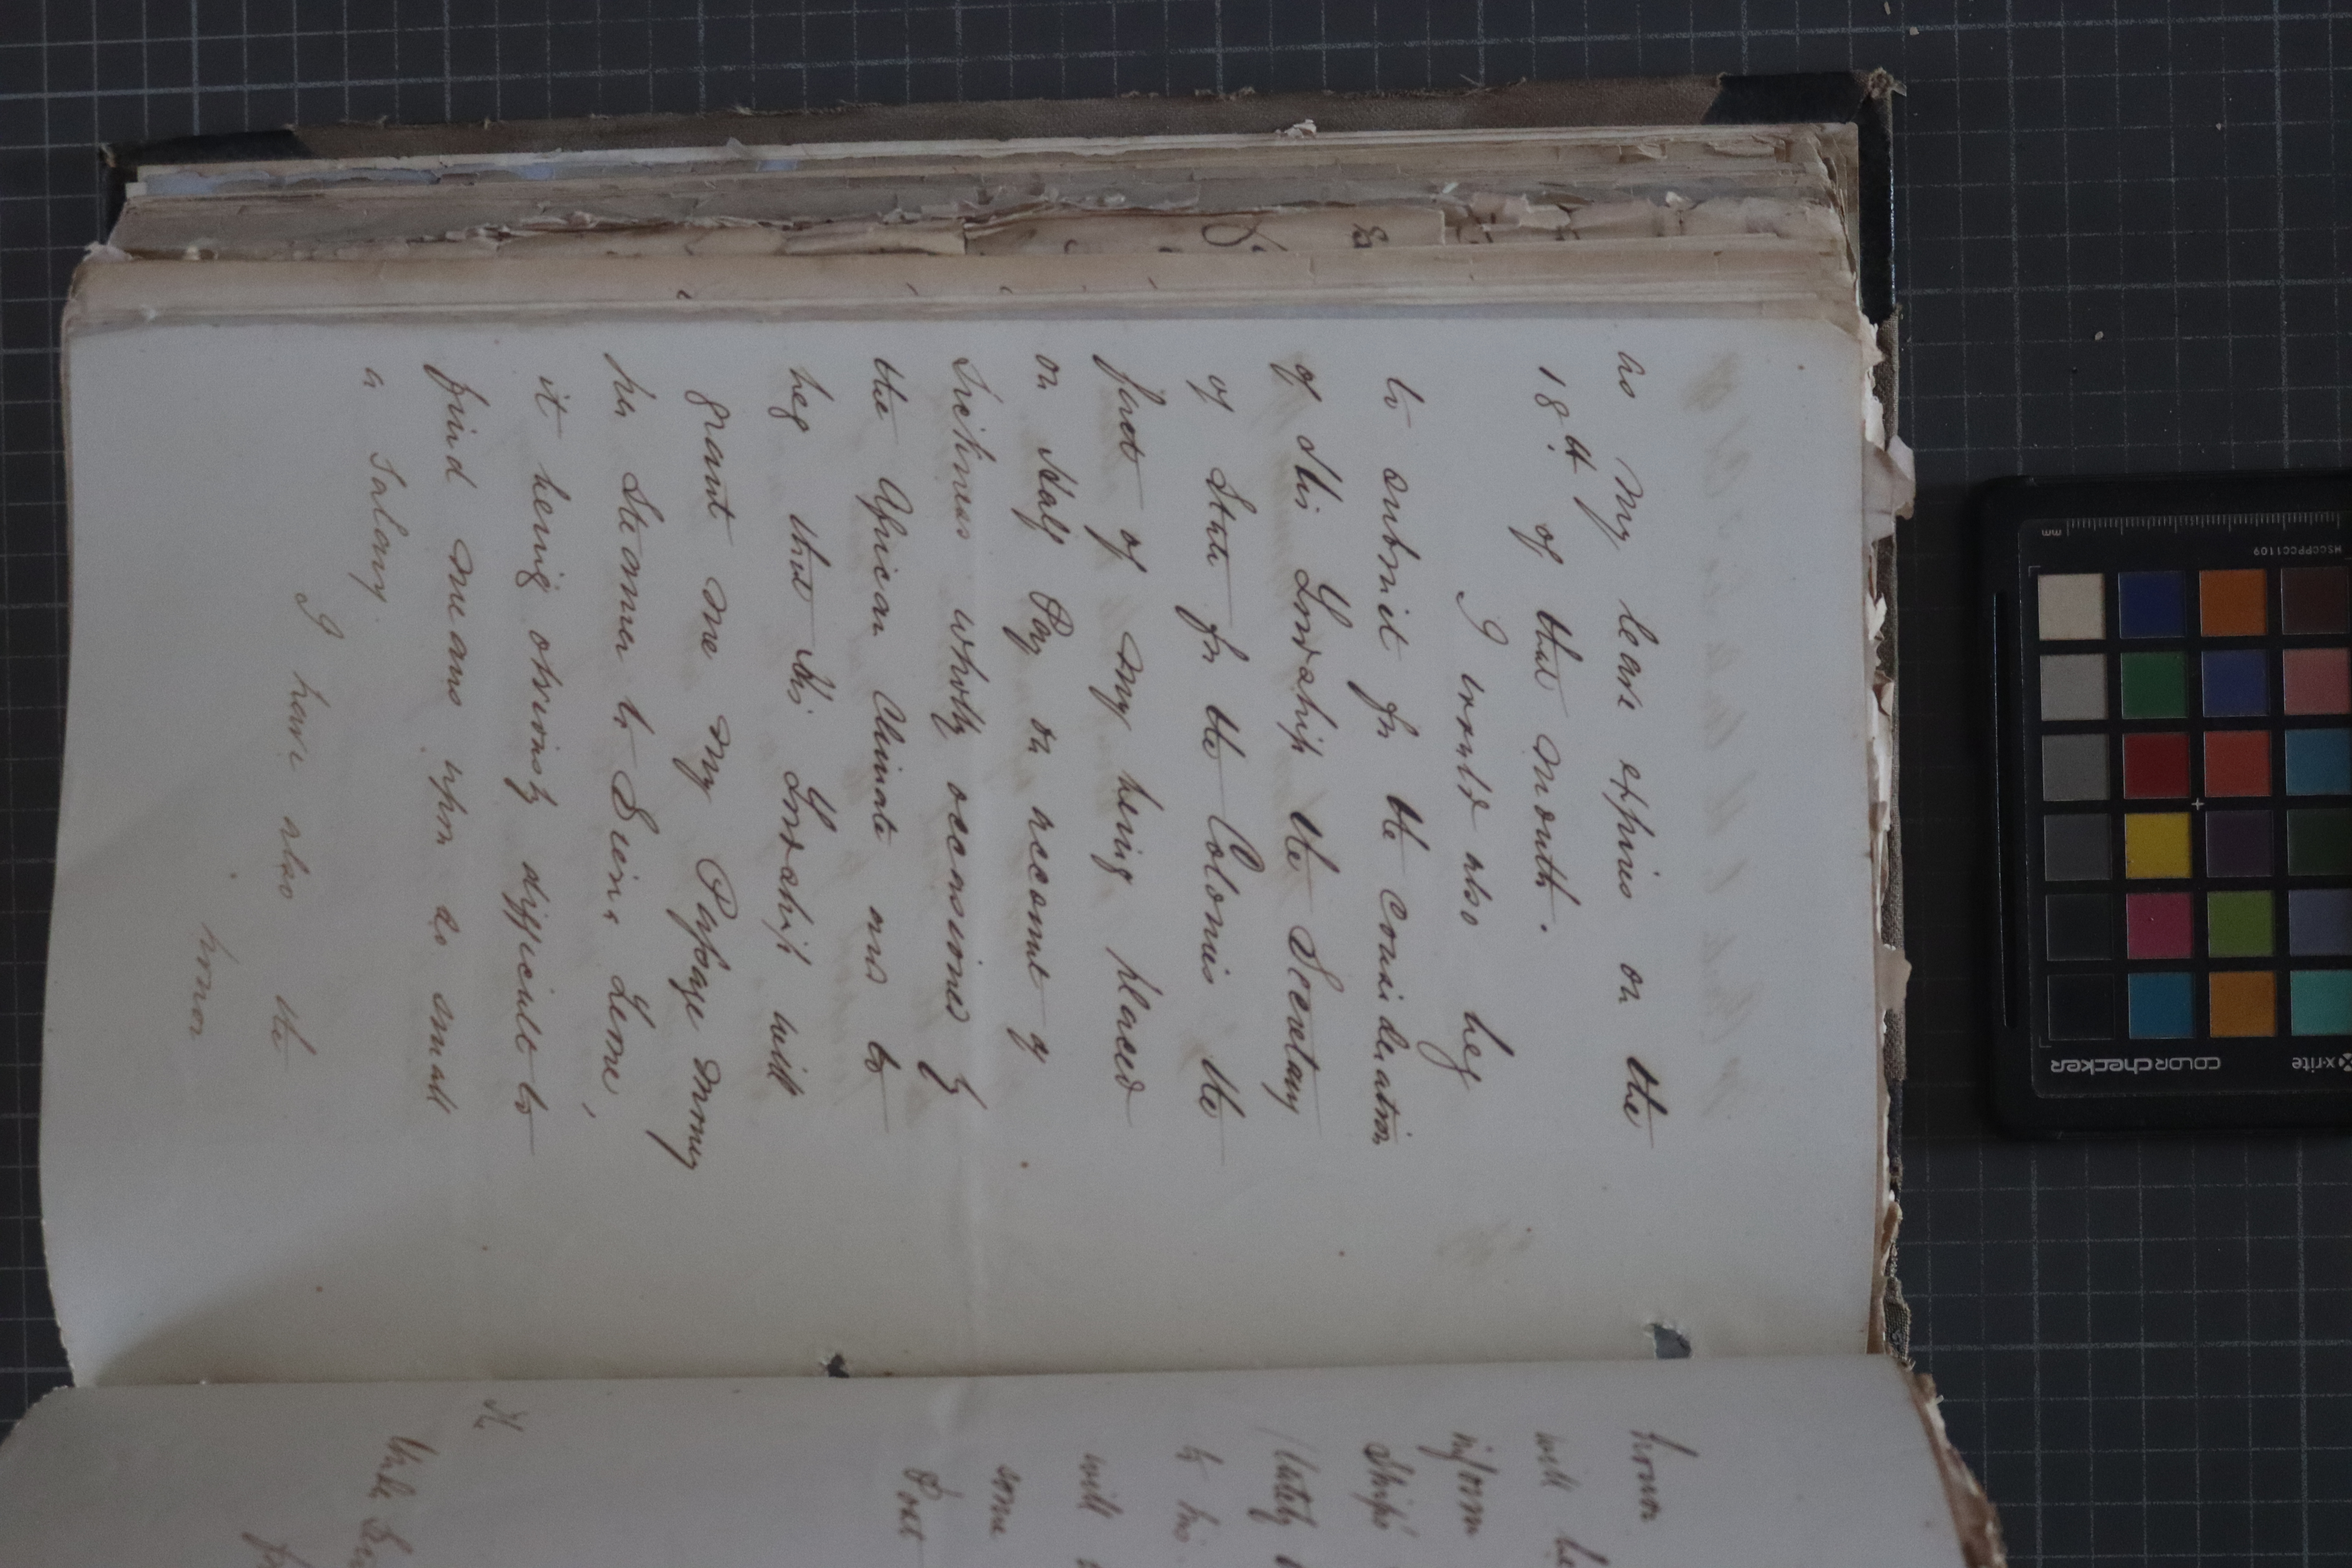 as my leave expires on the
18th. of that month.
I would also beg
to submit for the consideration
of His Lordship the Secretary
of State for the Colonies the
fact of my being placed
on Half Pay on account of
Sickness wholly occasioned by
the African Climate and to
beg that His Lordship will
grant me my Passage money
per Steamer to Sierra Leone,
it being obviously difficult to
find means upon so small
a Salary.
I have also the
honor
honor
will be
inform
Ship's
(lately
to his
will
some
Post
The
Under Sec
x-rite
colorchecker
MSCCPPCC1109
mm